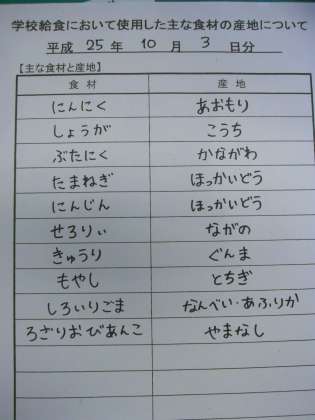 学校給食において使用した主な食材の産地について
平成 25 年 10 月 3 日分
【主な食材と産地】
食材 産地
にんにく あおもり
しょうが こうち
ぶたにく かながわ
たまねぎ ほっかいどう
にんじん ほっかいどう
せろりぃ ながの
きゅうり ぐんま
もやし とちぎ
しろいりごま なんべい・あふりか
ろざりおびあんこ やまなし